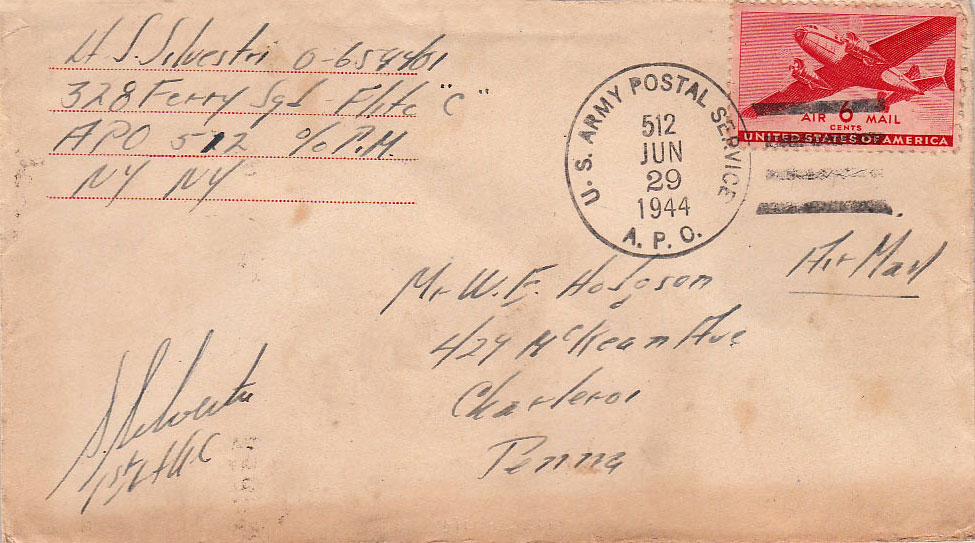 Lt S. Silvestri O-659401
328 Ferry Sqd - Flite "C"
APO 512 c/o P.M.
NY NY
U. S. ARMY POSTAL SERVICE
512
JUN
29
1944
A. P. O.
AIR 6 MAIL
CENTS
UNITED STATES OF AMERICA
Air Mail
Mr W. E. Hodgson
429 McKean Ave
Charleroi
Penna
S Silvestri
1st Lt A.C